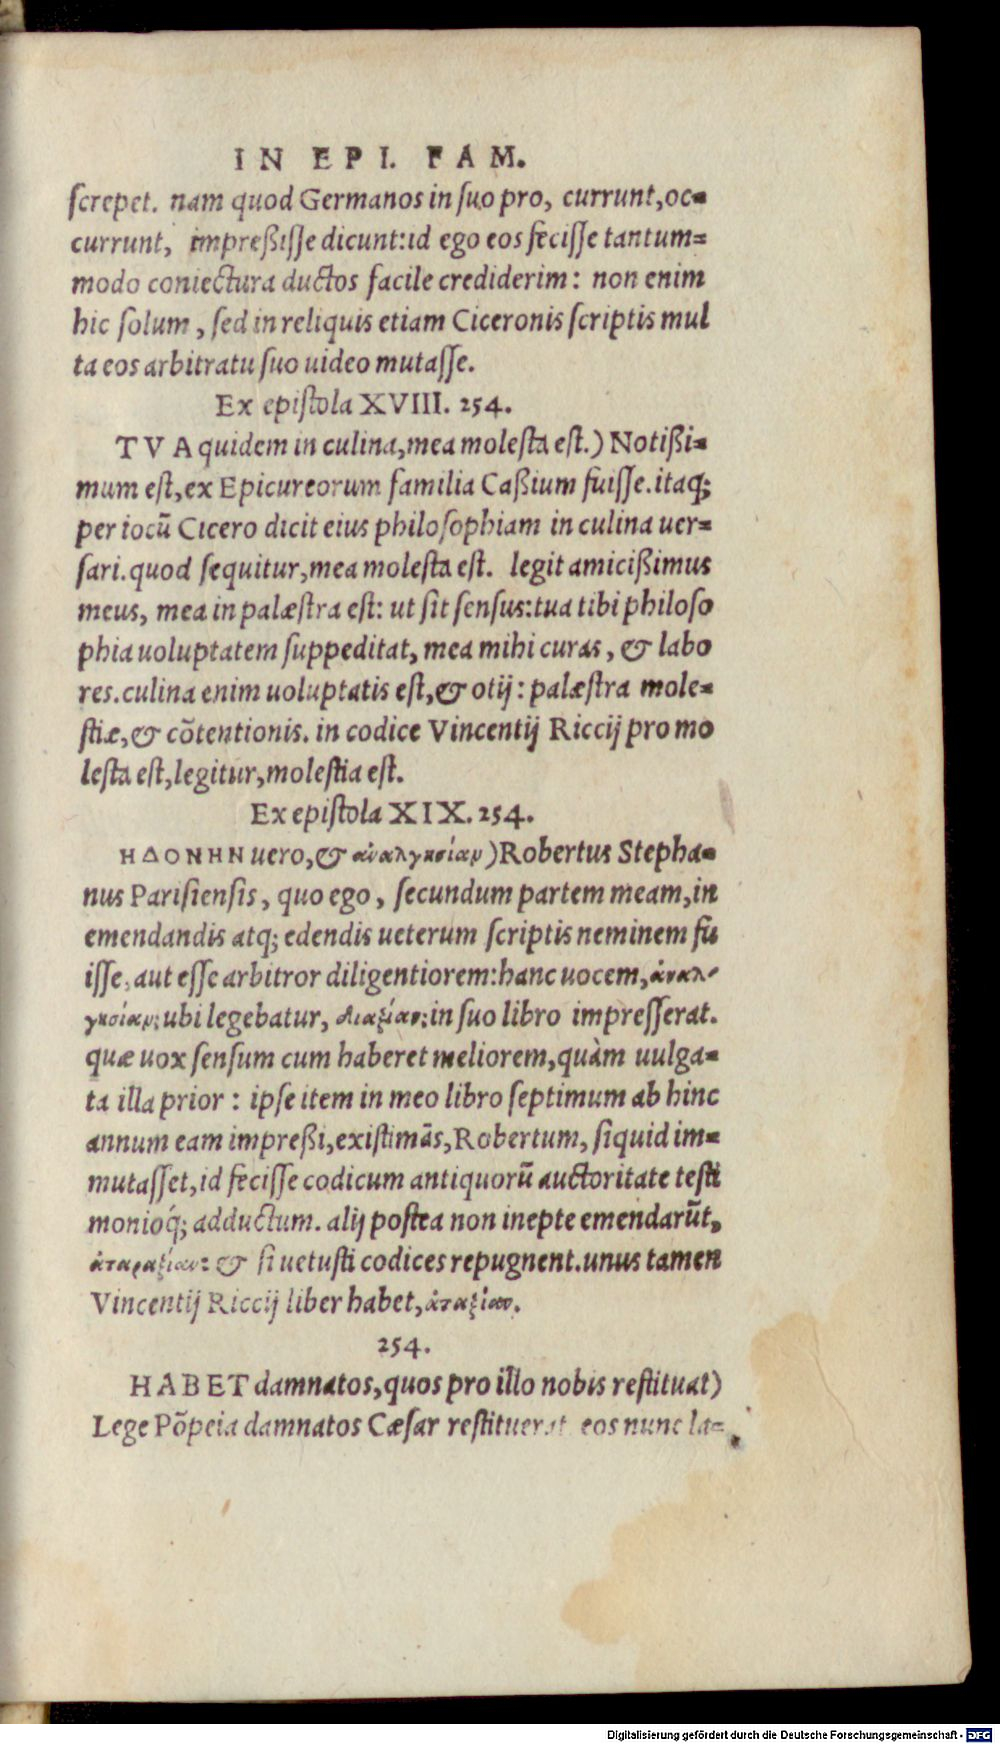 IN EPI. FAM.
ſcrepet. nam quod Germanos in ſuo pro, currunt, oc=
currunt, impreßiſſe dicunt: id ego eos feciſſe tantum=
modo coniectura ductos facile crediderim: non enim
hic ſolum, ſed in reliquis etiam Ciceronis ſcriptis mul
ta eos arbitratu ſuo uideo mutaſſe.
Ex epiſtola XVIII. 254.
TVA quidem in culina, mea moleſta eſt.) Notißi=
mum eſt, ex Epicureorum familia Caßium fuiſſe. itaq;
per iocū Cicero dicit eius philoſophiam in culina uer=
ſari. quod ſequitur, mea moleſta eſt. legit amicißimus
meus, mea in palæſtra eſt: ut ſit ſenſus: tua tibi philoſo
phia uoluptatem ſuppeditat, mea mihi curas, & labo
res. culina enim uoluptatis eſt, & otij: palæſtra mole=
ſtiæ, & cōtentionis. in codice Vincentij Riccij pro mo
leſta eſt, legitur, moleſtia eſt.
Ex epiſtola XIX. 254.
ΗΔΟΝΗΝ uero, & ἀναλγησίαν) Robertus Stepha=
nus Pariſienſis, quo ego, ſecundum partem meam, in
emendandis atq; edendis ueterum ſcriptis neminem fu
iſſe, aut eſſe arbitror diligentiorem: hanc uocem, ἀναλ=
γησίαν; ubi legebatur, διαξίαν; in ſuo libro impreſſerat.
quæ uox ſenſum cum haberet meliorem, quàm uulga=
ta illa prior: ipſe item in meo libro ſeptimum ab hinc
annum eam impreßi, exiſtimās, Robertum, ſiquid im=
mutaſſet, id feciſſe codicum antiquorū auctoritate teſti
monioq́; adductum. alij poſtea non inepte emendarūt,
ἀταραξίαν: & ſi uetuſti codices repugnent. unus tamen
Vincentij Riccij liber habet, ἀταξίαν.
254.
HABET damnatos, quos pro illo nobis reſtituat)
Lege Pōpeia damnatos Cæſar reſtituerat eos nunc la=
Digitalisierung gefördert durch die Deutsche Forschungsgemeinschaft - DFG